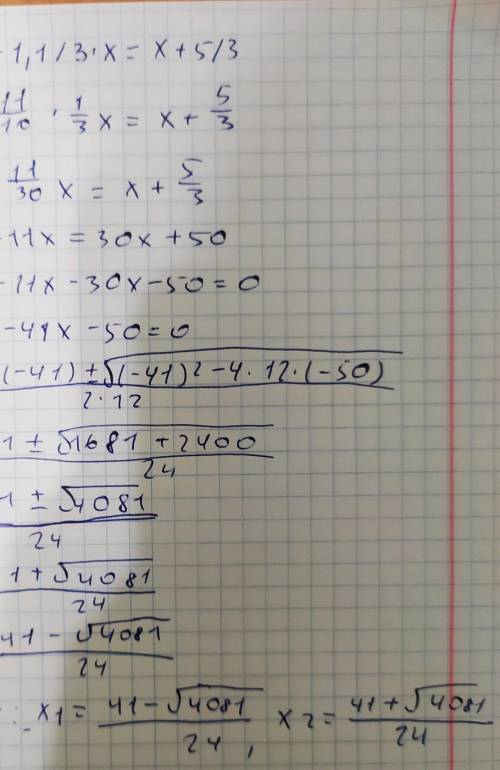 - 1,1/3·x = x + 5/3
11/10 · 1/3 x = x + 5/3
11/30 x = x + 5/3
-11x = 30x + 50
-11x - 30x - 50 = 0
-41x - 50 = 0
(-41) ± √((-41)² - 4·12·(-50)) / 2·12
1 ± √(1681 + 2400) / 24
1 ± √4081 / 24
1 + √4081 / 24
41 - √4081 / 24
x1 = 41 - √4081 / 24, x2 = 41 + √4081 / 24